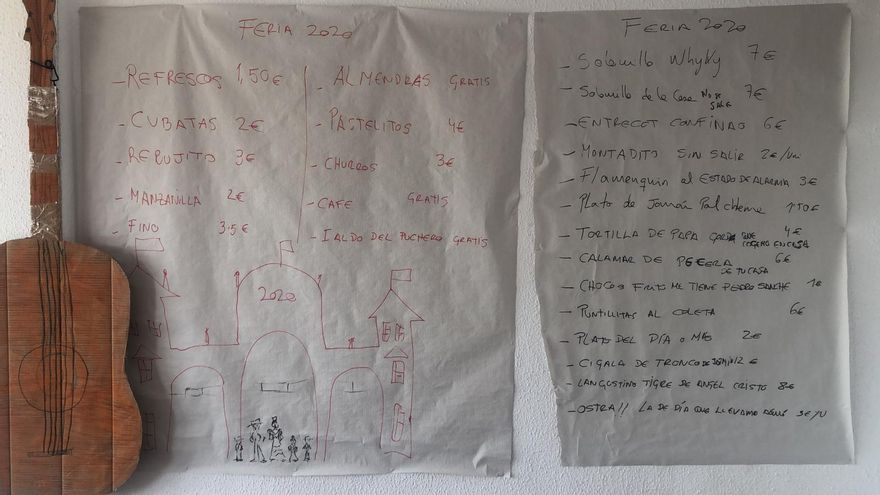 FERIA 2020
- REFRESCOS 1,50 €
- CUBATAS 2€
- REBUJITO 3€
- MANZANILLA 2€
- FINO 3.5€
- ALMENDRAS GRATIS
- PASTELITOS 4€
- CHURROS 3€
- CAFE GRATIS
- CALDO DEL PUCHERO GRATIS
2020
FERIA 2020
- Solomillo Whyky 7€
- Solomillo de la Casa NO SE SALE 7€
- ENTRECOT CONFINAO 6€
- MONTADITO SIN SALIR 2€/Uni
- Flamenquin al ESTADO DE ALARMA 3€
- Plato de Jamón
- TORTILLA DE PAPA QUE COGEMO EN CASA 4€
- CALAMAR DE PECERA DE TU CASA 6€
- CHOCOS FRITO ME TIENE PEDRO SANCHE 1€
- PUNTILLITAS AL COLETA 6€
- PLATO DEL DÍA O MES 2€
- CIGALA DE TRONCO DE
- LANGUSTINO TIGRE DE ANGEL CRISTO 8€
- OSTRA// LA DE DÍA QUE LLEVAMO 3€/U